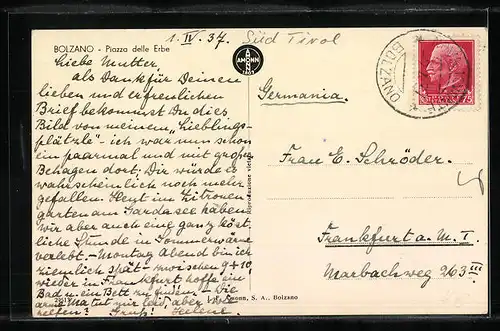 1. IV. 37. Süd Tirol
BOLZANO - Piazza delle Erbe
AMONN
Liebe Mutter,
als Dank für Deinen
lieben und erfreulichen
Brief bekommst Du dies
Bild von meinem "Lieblings-
plätzle" - ich war nun schon
ein paarmal und mit großem
Behagen dort; Dir würde es
wahrscheinlich noch mehr
gefallen. Heut im Zitronen-
garten am Gardasee haben
wir aber auch eine ganz köst-
liche Stunde in Sommerwärme
verlebt. - Montag Abend bin ich
ziemlich spät - zwischen 9 + 10
wieder in Frankfurt hoffe ein
Bad u. ein Bett zu finden. - Die
arme tut mir leid, aber wie
helfen? Gruß! Helene.
BOLZANO
75
Germania.
Frau E. Schröder.
Frankfurt a. M. I.
Marbachweg 263 III
Riproduzione vietata
Amonn, S. A., Bolzano